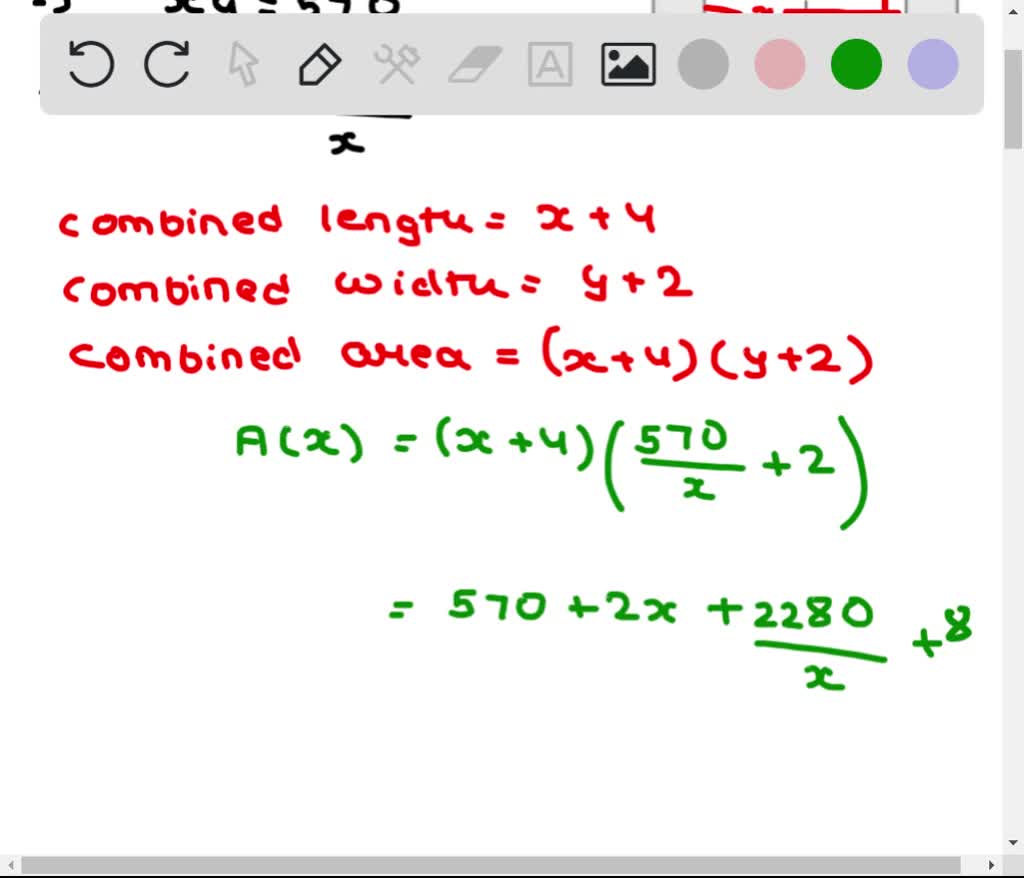 xy = 570
x
combined length = x + 4
combined width = y + 2
combined area = (x+4)(y+2)
A(x) = (x+4)(570/x + 2)
= 570 + 2x + 2280/x + 8